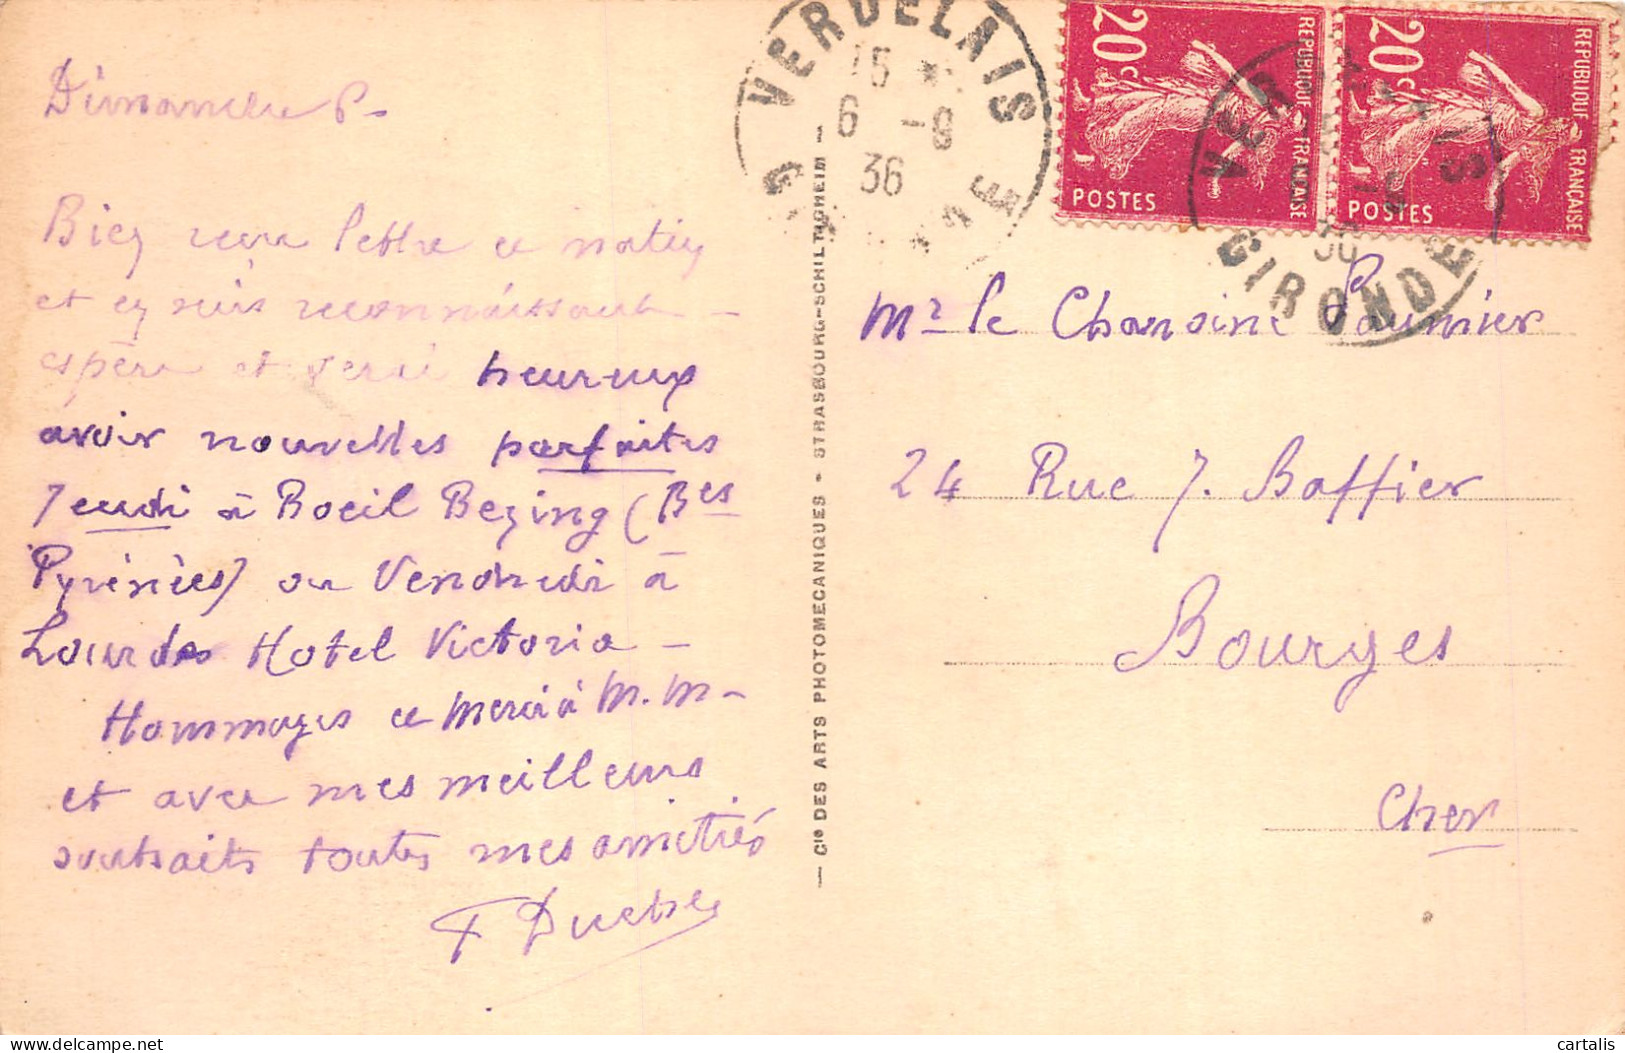 Dimanche
Bien reçu lettre et
et en suis reconnaissant -
espère et serai heureux
avoir nouvelles parfaites
Jeudi à Boeil Bezing (Bses
Pyrénées) ou Vendredi à
Lourdes Hotel Victoria -
Hommages et merci à M. M -
et avec mes meilleurs
souhaits toutes mes amitiés
VERDELAIS
15 *
6 -9
36
GIRONDE
20c
REPUBLIQUE FRANÇAISE
POSTES
20c
REPUBLIQUE FRANÇAISE
POSTES
VERDELAIS
36
GIRONDE
— Cie DES ARTS PHOTOMECANIQUES - STRASBOURG-SCHILTIGHEIM —
Mr le Chanoine Paumier
24 Rue J. Baffier
Bourges
Cher
delcampe.net
cartalis